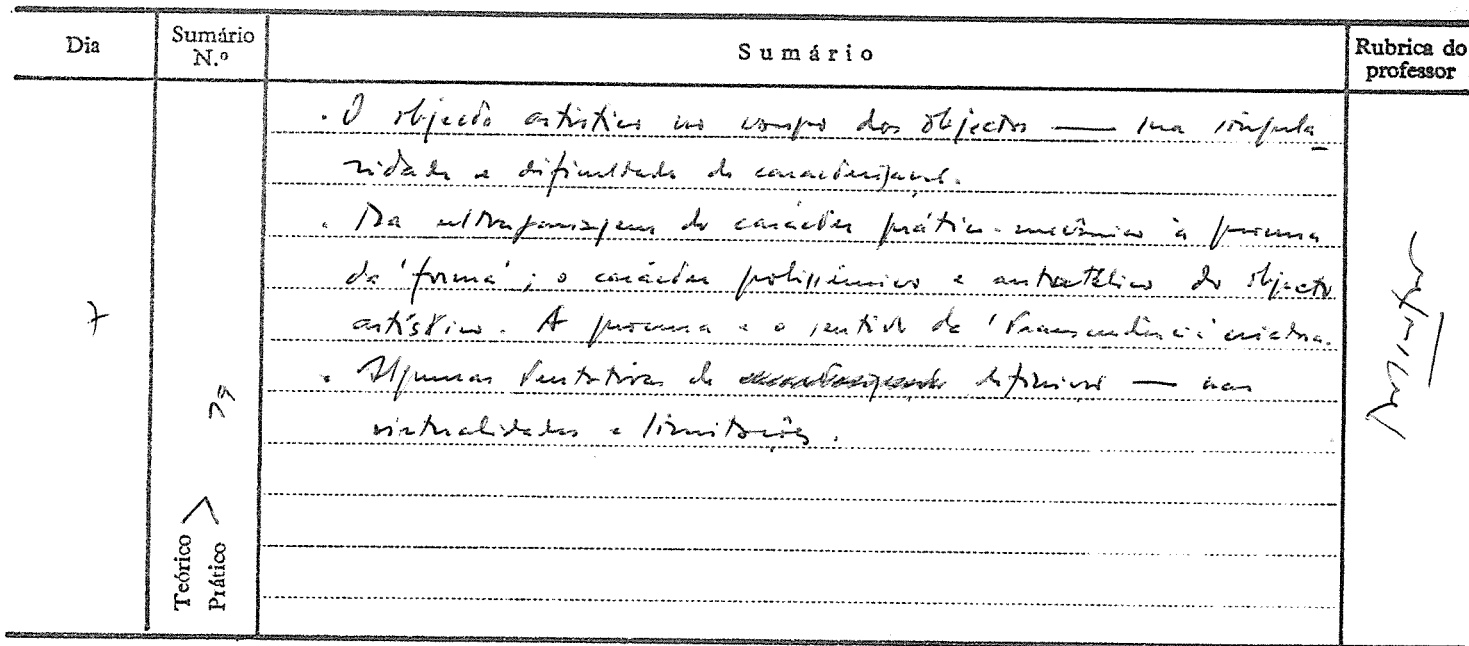 Dia
Sumário N.º
Sumário
Rubrica do professor
7
Teórico Prático
. O objecto artístico no campo dos objectos — sua singula
ridade e dificuldade de caracterização.
. Da ultrapassagem do carácter prático-mecânico à procura
da 'forma'; o carácter polissémico e do objecto
artístico. A procura e o sentido da 'transcendência' criadora.
. Algumas tentativas de definição — suas
virtualidades e limitações.